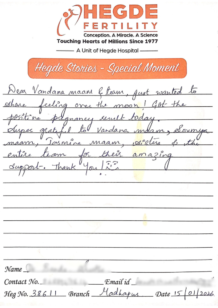 HEGDE
FERTILITY
Conception. A Miracle. A Science
Touching Hearts of Millions Since 1977
A Unit of Hegde Hospital
Hegde Stories - Special Moment
Dear Vandana maam & team, Just wanted to
share feeling over the moon! Got the
positive pregnancy result today.
Super grateful to Vandana maam, Soumya
maam, Jasmine maam, & the
entire team for their amazing
support. Thank You!
Name Dr.
Contact No. Email id
Heg No. 38611 Branch Madhapur Date 15/01/2024